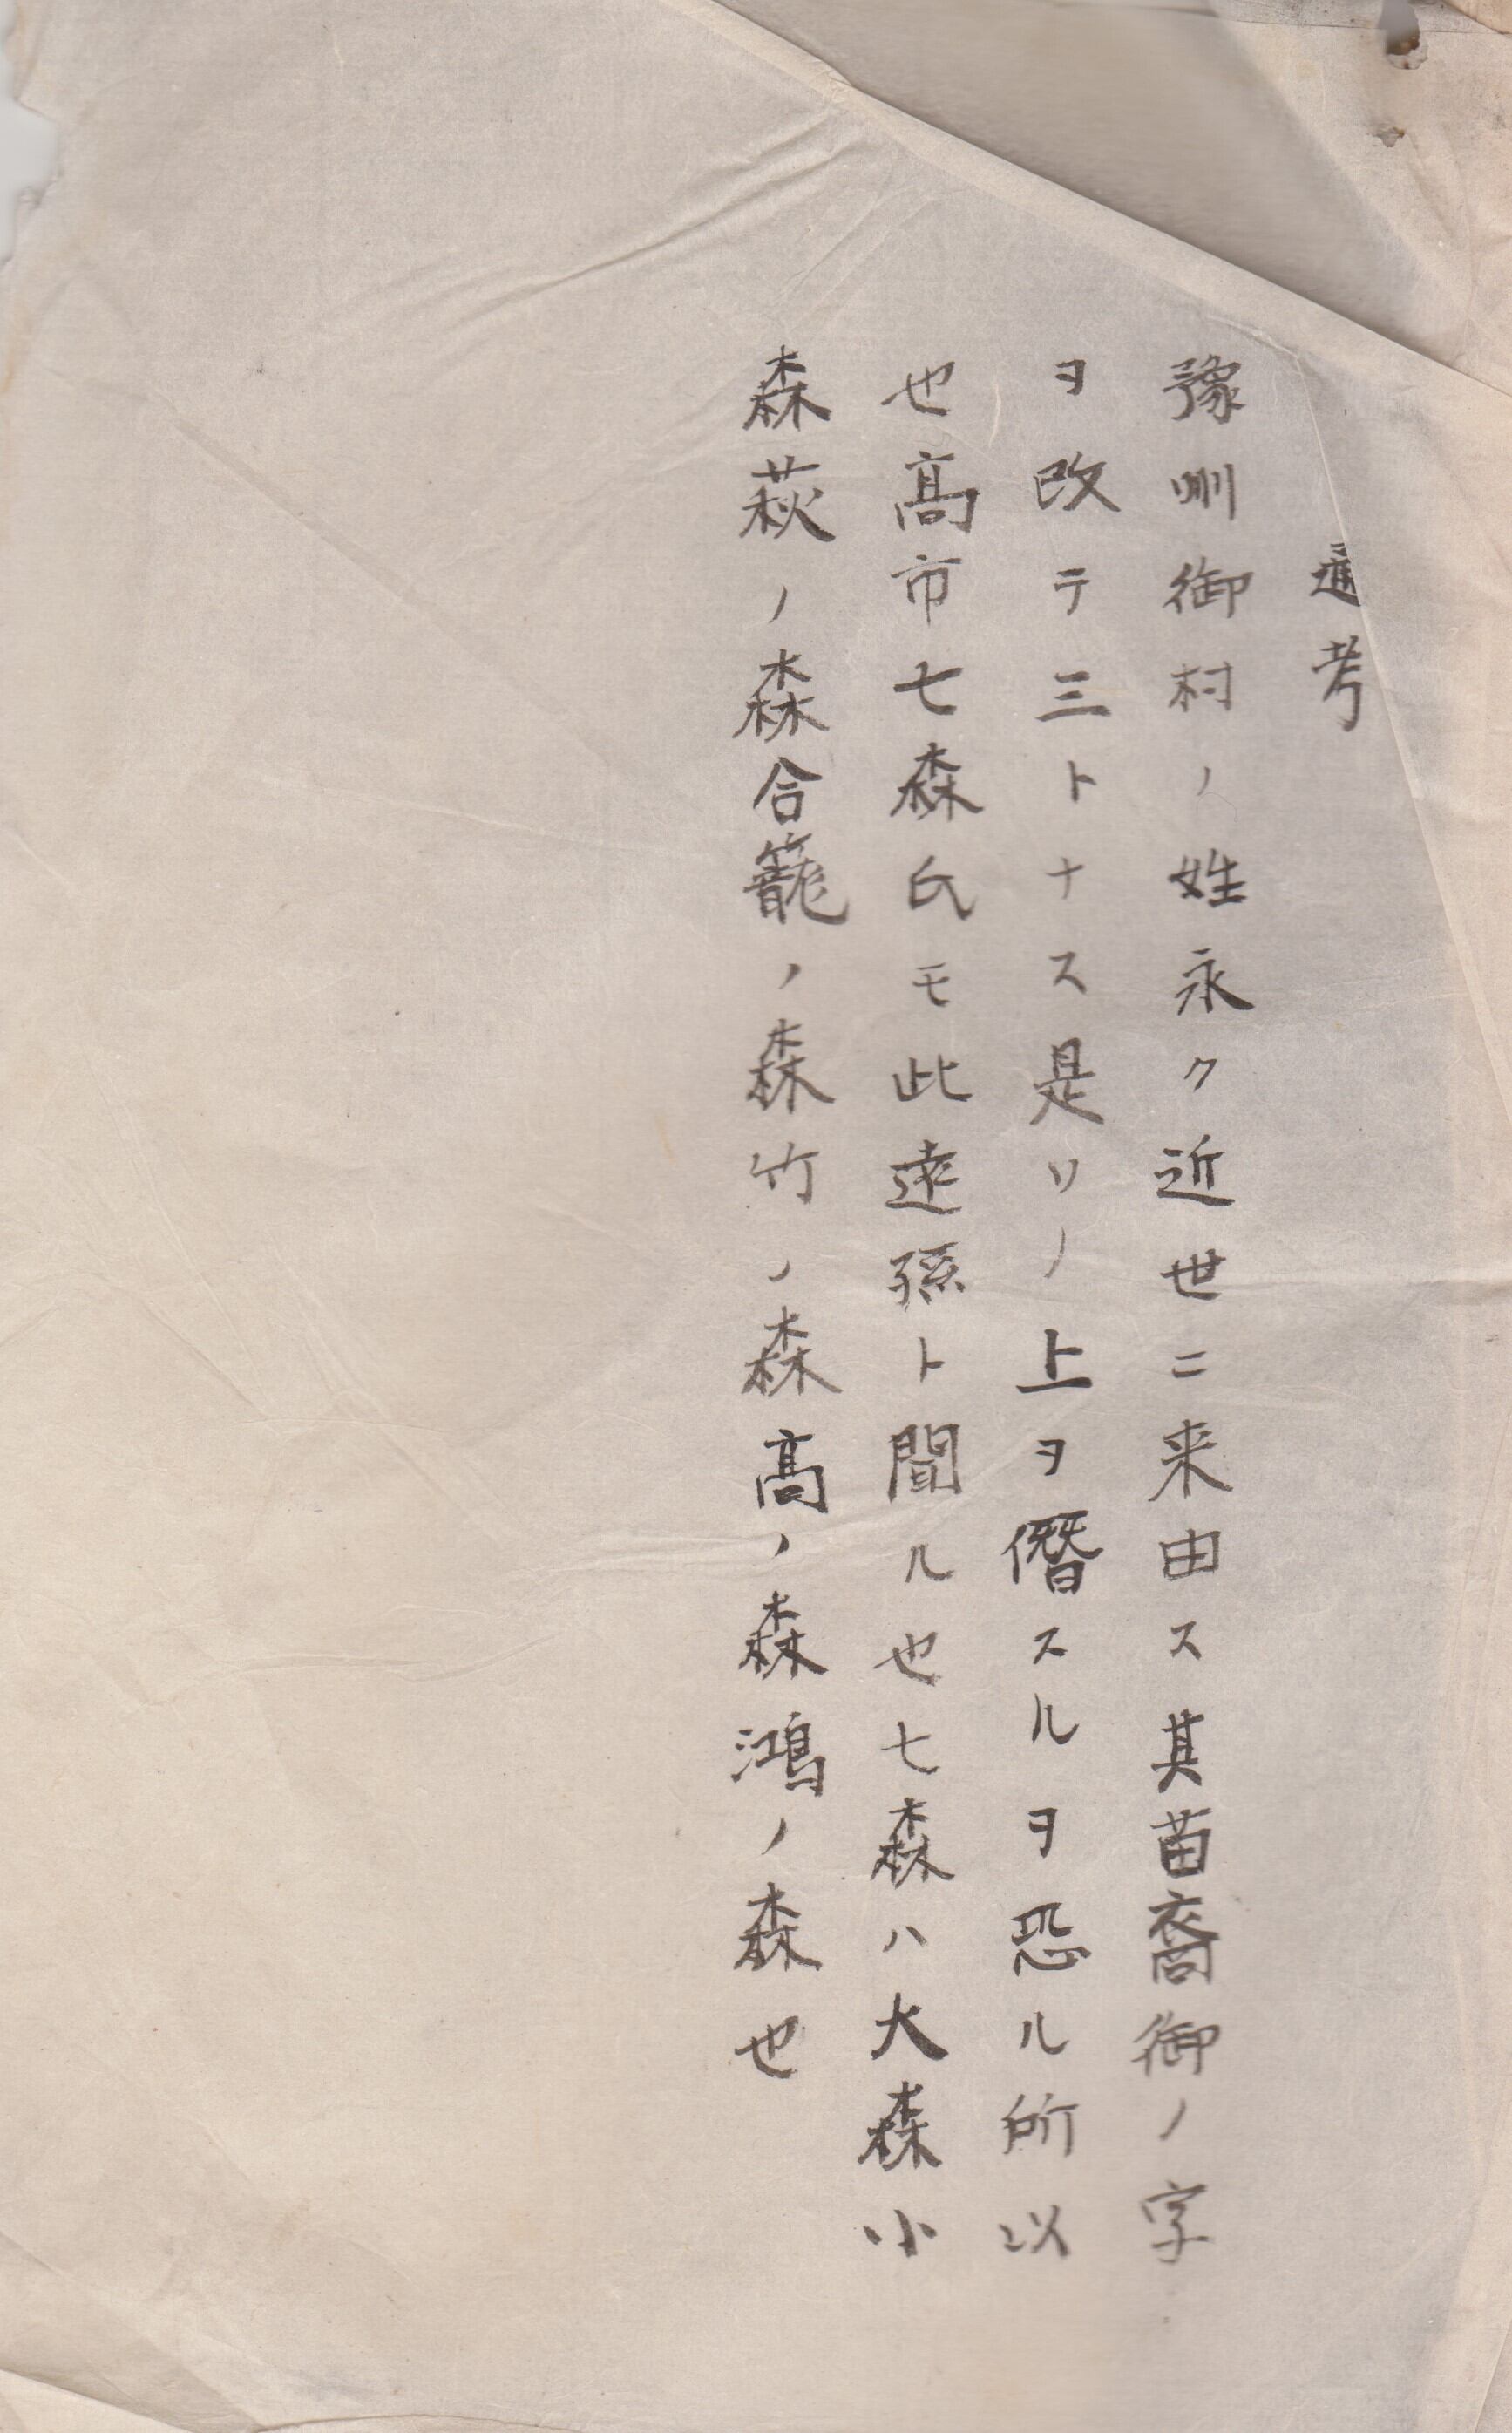 通考
豫州御村ノ姓永ク近世ニ来由ス其苗裔御ノ字
ヲ改テ三トナス是ソノ上ヲ僭スルヲ恐ル所以
也高市七森氏モ此遠孫ト聞ル也七森ハ大森小
森萩ノ森合籠ノ森竹ノ森高ノ森鴻ノ森也